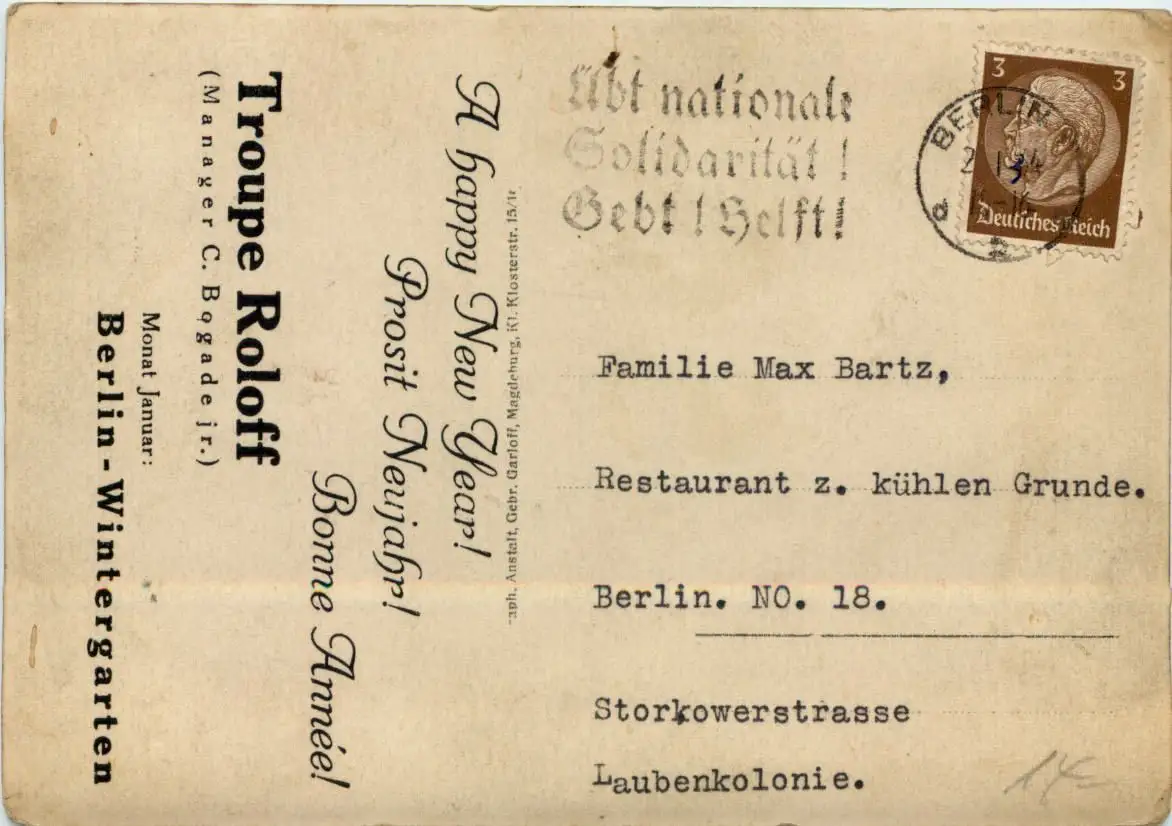 Troupe Roloff
(Manager C. Bogade jr.)
Monat Januar:
Berlin-Wintergarten
A happy New Year!
Prosit Neujahr!
Bonne Année!
Anstalt, Gebr. Garloff, Magdeburg, Kl. Klosterstr. 15/1
Übt nationale
Solidarität!
Gebt! Helft!
3 3
Deutsches Reich
BERLIN
Familie Max Bartz,
Restaurant z. kühlen Grunde.
Berlin. NO. 18.
Storkowerstrasse
Laubenkolonie.